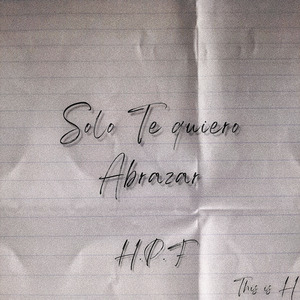 Solo Te quiero
Abrazar
H.P.F
This is H